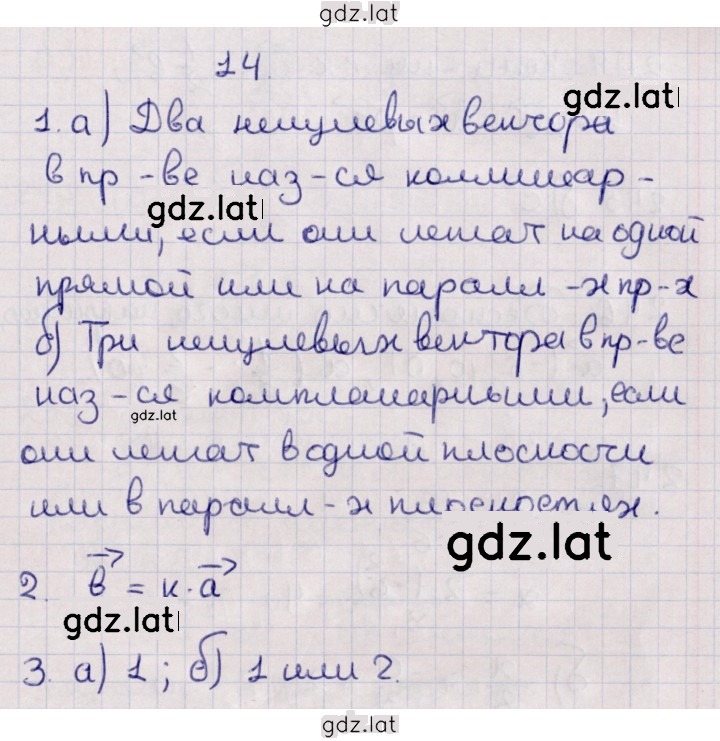 gdz.lat
14.
gdz.lat
1. а) Два ненулевых вектора
в пр-ве наз-ся коллинеар-
gdz.lat
ными, если они лежат на одной
прямой или на паралл-х пр-х
б) Три ненулевых вектора в пр-ве
наз-ся компланарными, если
gdz.lat
они лежат в одной плоскости
или в паралл-х плоскостях.
gdz.lat
2. в = к · а
gdz.lat
3. а) 1 ; б) 1 или 2.
gdz.lat